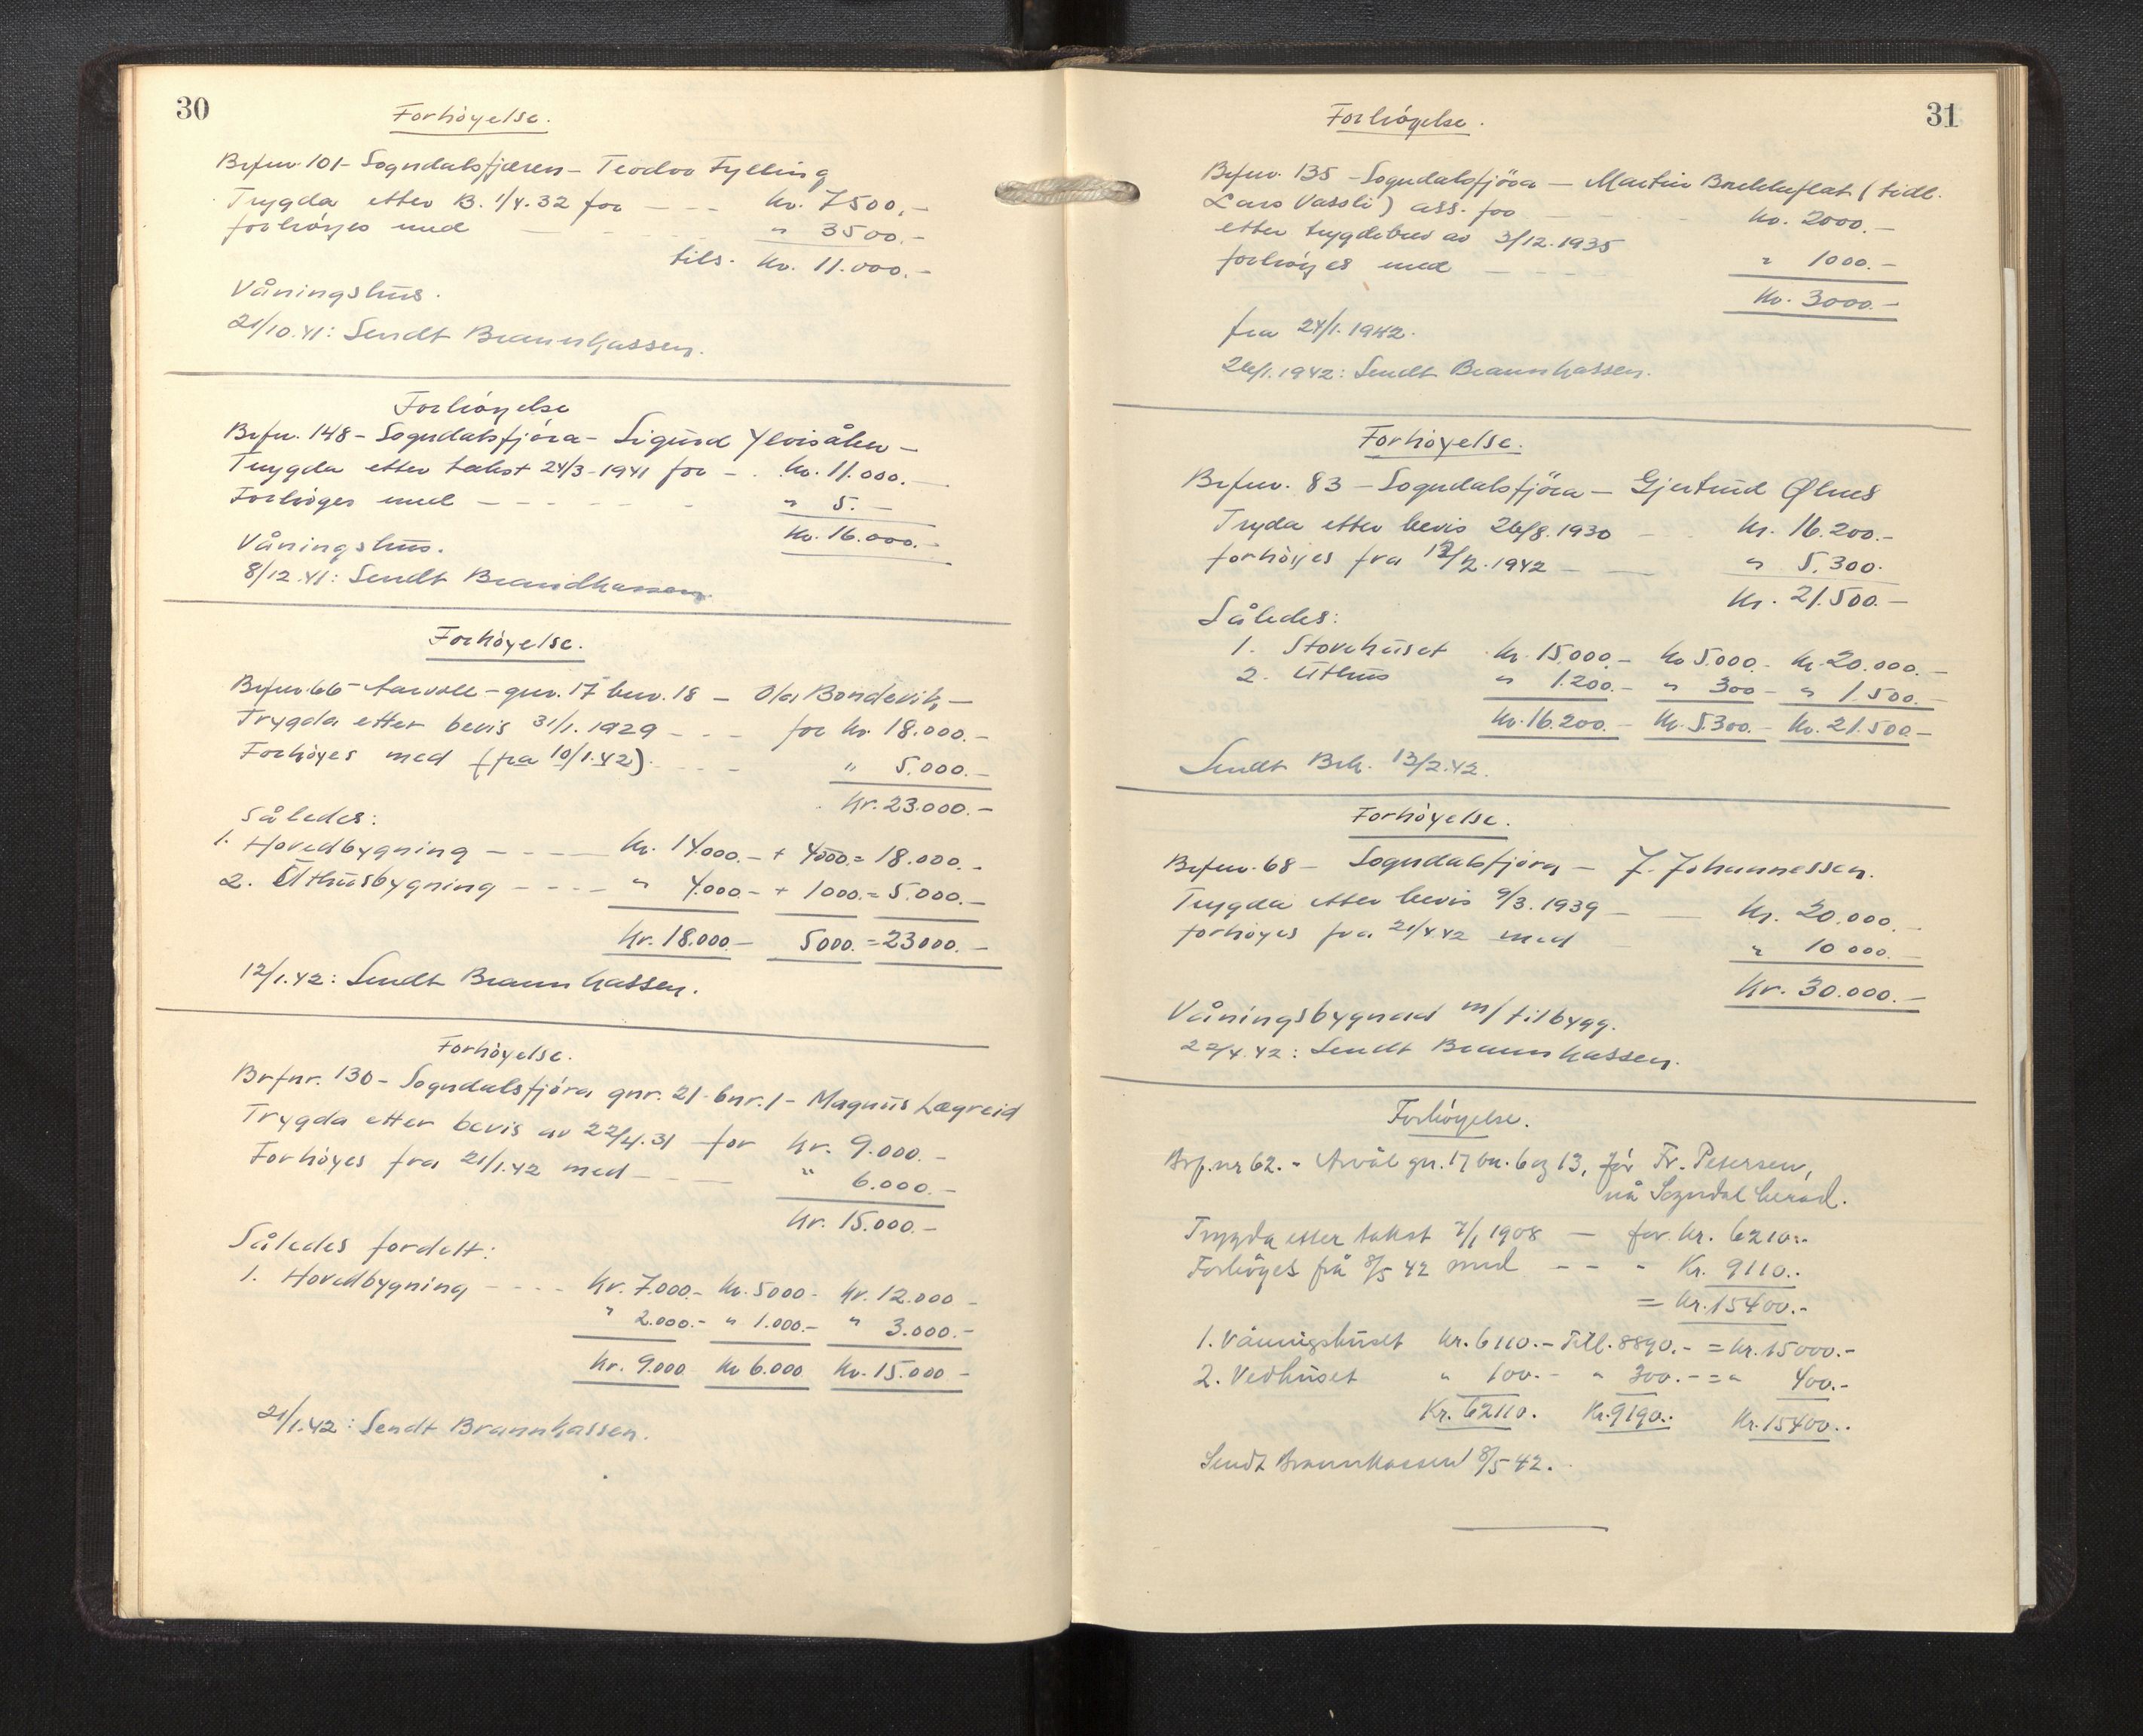 30
Forhøyelse.
Brfnr. 101 - Sogndalsfjøren - Teodor Fylling
Trygda etter B. 1/4.32 for - - - kr. 7500.-
forhøyes med - - - - " 3500.-
tils. kr. 11.000.-
Våningshus.
21/10.41: Sendt Brannkassen.
Forhøyelse
Brfnr. 148 - Sogndalsfjøra - Sigurd Ylvisåker -
Trygda etter takst 24/3-1941 for - . kr. 11.000.-
Forhøges med - - - - - - " 5. -
kr. 16.000.-
Våningshus.
8/12.41: Sendt Brandkassen
Forhøyelse.
Brfnr. 66 - Aarvoll - gnr. 17 bnr. 18 - Ola Bondevik -
Trygda etter bevis 31/1.1929 - - - for kr. 18.000.-
Forhøyes med (fra 10/1.42) - - - - " 5.000.-
kr. 23.000.-
Således:
1. Hovedbygning - - - - kr. 14000.- + 4000.= 18.000.-
2. Uthusbygning - - - - " 4.000.- + 1000.= 5.000.-
kr. 18.000.- 5000. = 23000.-
12/1.42: Sendt Brannkassen.
Forhøyelse.
Brfnr. 130 - Sogndalsfjøra gnr. 21 - bnr. 1 - Magnus Lægreid
Trygda etter bevis av 22/4.31 for kr. 9.000.-
Forhøyes fra 21/1.42 med - - - " 6.000.-
kr. 15.000.-
Således fordelt:
1. Hovedbygning - - - - kr. 7.000.- kr. 5000.- kr. 12.000 -
" 2.000.- " 1.000.- " 3.000.-
kr. 9.000 kr 6.000 kr. 15.000 -
21/1.42: Sendt Brannkassen.
31
Forhøyelse.
Brfnr. 135 - Sogndalsfjöra - Martin Brekkeflat (tidl.
Lars Vassli) ass. for - - - kr. 2000.-
etter trygdebrev av 3/12.1935
forhøyes med - - - - " 1000.-
kr. 3000.-
fra 24/1.1942.
26/1.1942: Sendt Brannkassen.
Forhøyelse.
Brfnr. 83 - Sogndalsfjöra - Gjertrud Ølnes
Tryda etter bevis 26/8.1930 - - kr. 16.200.-
forhøyes fra 12/2.1942 - - - " 5.300.
kr. 21.500.-
Således:
1. Stovehuset kr. 15.000.- kr 5.000.- kr. 20.000.-
2. Uthus " 1.200.- " 300 - " 1.500.-
kr. 16.200.- kr. 5.300.- kr. 21.500 -
Sendt Brk. 13/2.42.
Forhøyelse.
Brfnr. 68 - Sogndalsfjøra - J. Johannessen.
Trygda etter bevis 9/3.1939 - - kr. 20.000.-
forhøyes fra 21/4.42 med - " 10 000.
kr. 30.000.-
Våningsbygnad m/ tilbygg.
22/4.42: Sendt Brannkassen.
Forhöyelse.
Brf.nr 62. - Arvål gn. 17 bn. 6 og 13, för Fr. Petersen,
nå Sogndal herad.
Trygda etter takst 7/1 1908 - for. kr. 6210.-
Forhöges frå 8/5 42 med - - - Kr. 9110.-
= kr. 15400.-
1. Våningshuset kr. 6110.- Till. 8890.- = kr. 15000.-
2. Vedhuset " 100.- " 300.- = " 400.-
Kr. 62110. Kr. 9190.- Kr. 15400.-
Sendt Brannkassen 8/5 42.